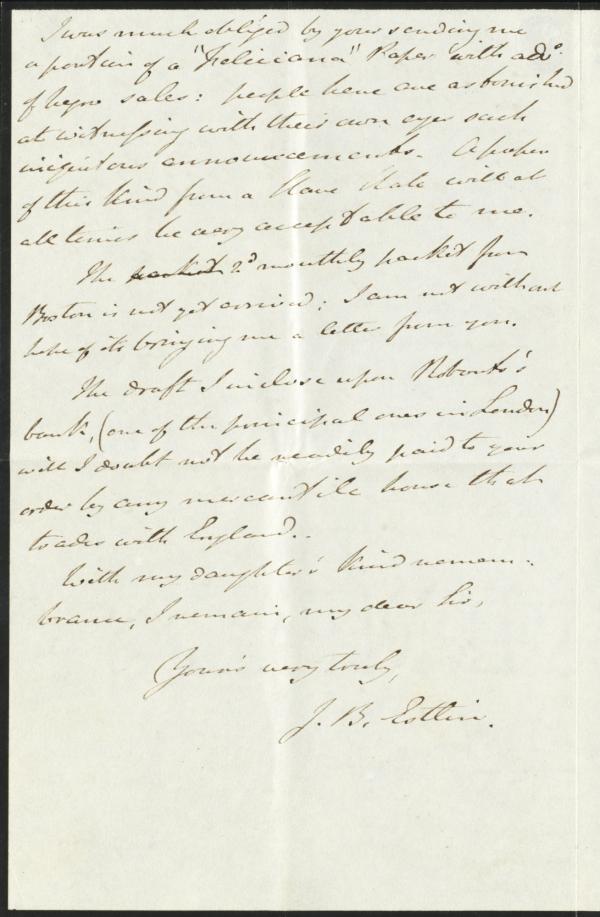 I was much obliged by your sending me
a portion of a "Feliciana" Paper with advs.
of Negro sales: people here are astonished
at witnessing with their own eyes such
iniquitous announcements. A paper
of this kind from a Slave State will at
all times be very acceptable to me.
The packet 2d monthly packet from
Boston is not yet arrived; I am not without
hope of its bringing me a letter from you.
The draft I inclose upon Robarts's
bank, (one of the principal ones in London)
will I doubt not be readily paid to your
order by any mercantile house that
trades with England.
With my daughter's kind remem-
brance, I remain, my dear Sir,
Your's very truly,
J. B. Estlin.